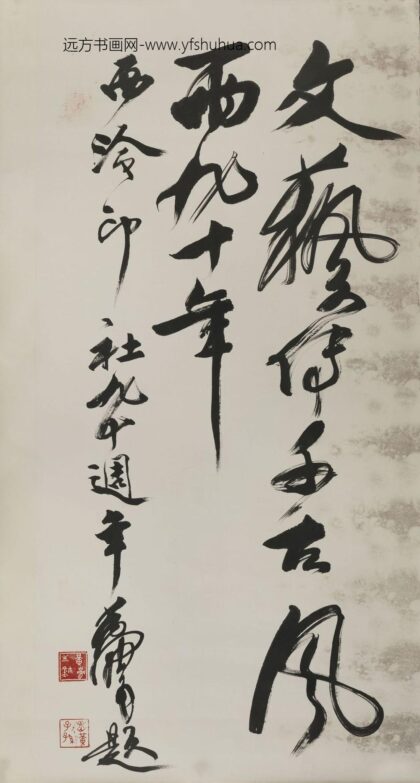 远方书画网-www.yfshuhua.com
文藝傳千古風
雨九十年
西泠印社九十週年黄胄題